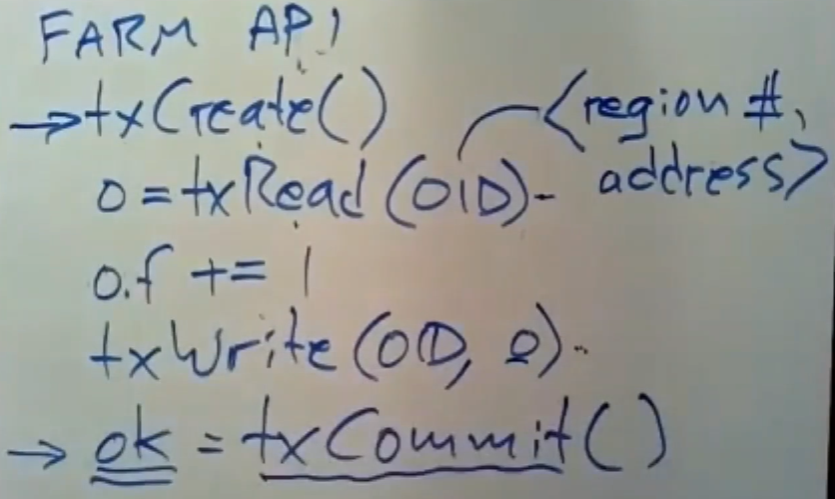 FARM API
→txCreate()
<region #,
address>
o = txRead (OID)-
o.f += 1
txWrite (OID, o).
→ ok = txCommit()